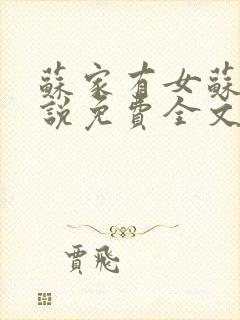 蘇家有女蘇
說免費全文
賈飛